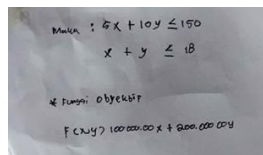 Maka : 5x + 10y ≤ 150
x + y ≤ 18
* Fungsi Obyektip
F(x,y) 100000.00x + 200.000.00y